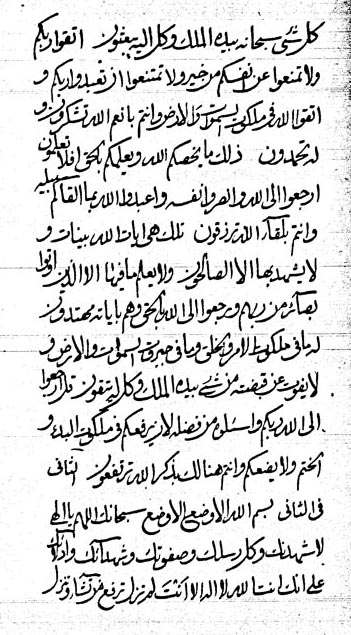 كل شئ سبحانه بيده الملك وكل اليه يبعثون اتقوا ربكم
ولا تمنعوا عن انفسكم من خير ولا تمتنعوا ان تعبدوا ربكم و
اتقوا الله في ملكوت السموات والارض وانتم بانعم الله تشكرون و
له تحمدون ذلك ما يخصكم الله ويعلمكم بالحق افلا تعلمون
ارجعوا الى الله وانصروا نفسه واعبدوا الله بما القاكم سبيله
وانتم بلقاء الله ترزقون تلك هي ايات الله بينات و
لا يشهد بها الا الصالحون ولا يعلم ما فيها الا الذين اوتوا
بصائر من ربهم ويرجعوا الى الله بالحق وهم باياته مهتدون
له ما في ملكوت الامر والخلق وما في جبروت السموات والارض و
لا يفوت عن قبضته من شئ بيده الملك وكل اليه يتقون قل ارجعوا
الى الله ربكم واسئلوه من فضله لان يرفعكم في ملكوت البدء و
الختم ولا يضعكم وانتم هنالك بذكر الله ترتفعون الثاني
في الثاني بسم الله الاوضع الاوضع سبحانك اللهم يا الهي
لاشهدنك وكل رسلك وصفوتك وشهدائك وادلائك
على انك انت الله لا اله الا انت لم تزل ترفع من تشاء وتنزل